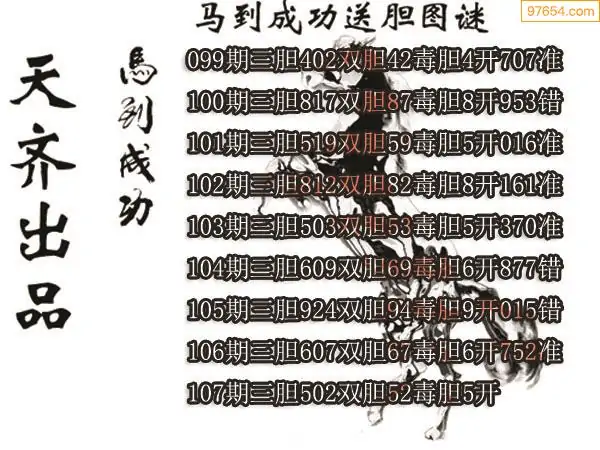 97654.com
马到成功送胆图谜
天齐出品
馬到成功
099期三胆402双胆42毒胆4开707准
100期三胆817双胆87毒胆8开953错
101期三胆519双胆59毒胆5开016准
102期三胆812双胆82毒胆8开161准
103期三胆503双胆53毒胆5开370准
104期三胆609双胆69毒胆6开877错
105期三胆924双胆94毒胆9开015错
106期三胆607双胆67毒胆6开752准
107期三胆502双胆52毒胆5开